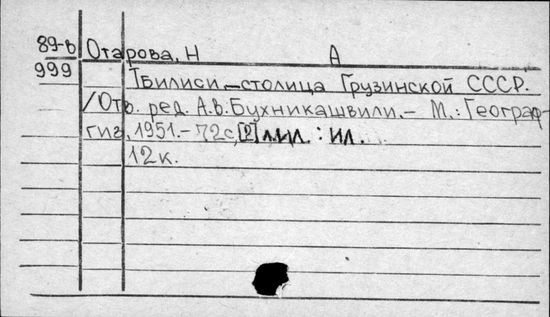 89-в Отарова, Н А
999 Тбилиси.-столица Грузинской СССР.
/Отв. ред. А.В.Бухникашвили.- М.: Географ
гиз, 1951.-72с,[2] л.ил. : ил.
12к.